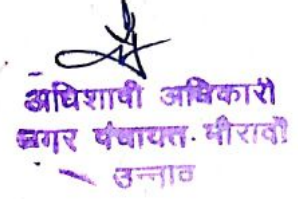 अधिशाषी अधिकारी
नगर पंचायत मौरावाँ
उन्नाव